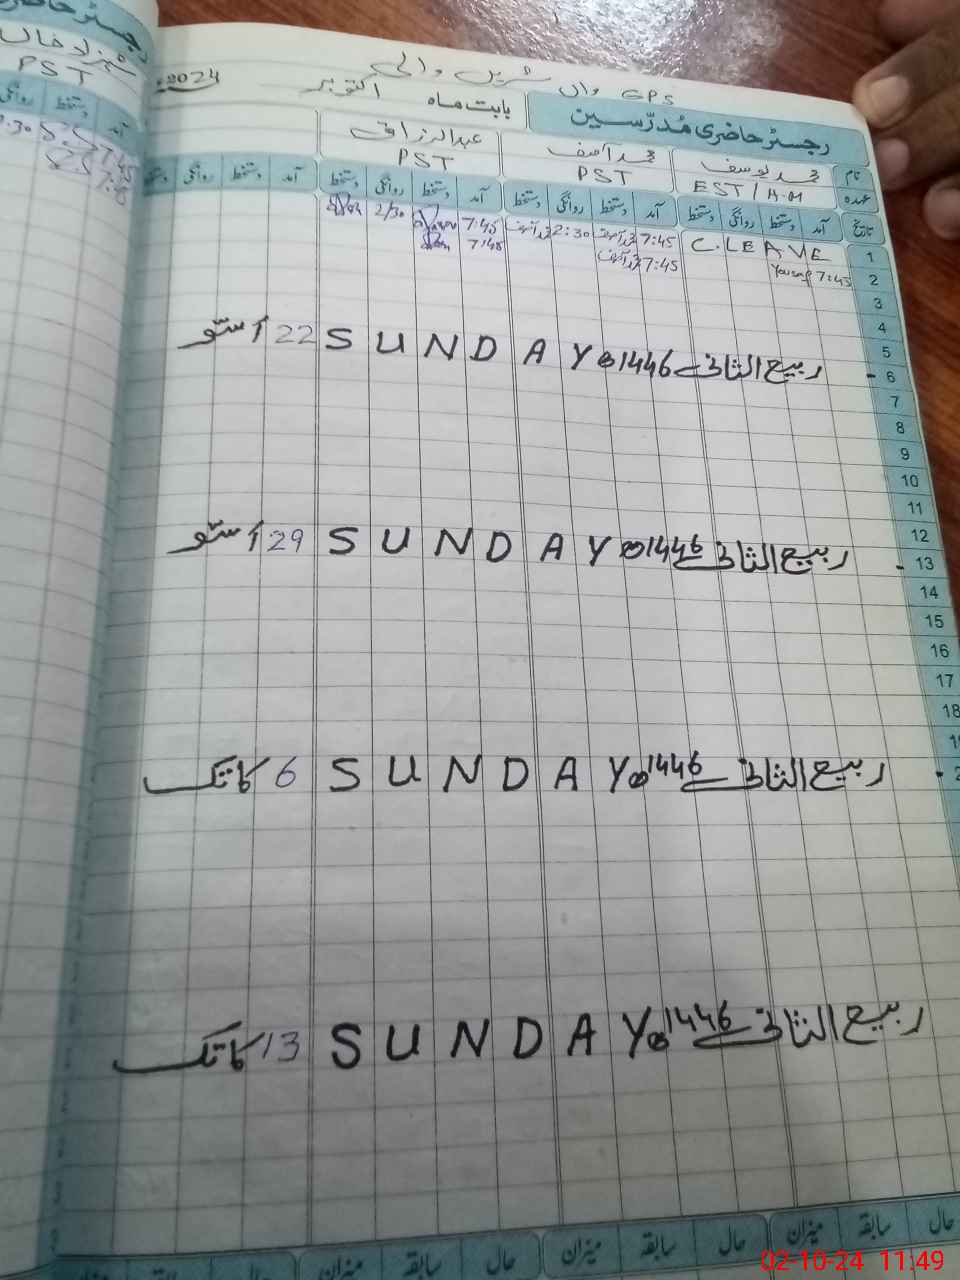 رجسٹر حاضری
شہزاد خاں
PST
روانگی دستخط آمد
7:45
GPS واں شریں والی
رجسٹر حاضری مُدرّسین بابت ماہ اکتوبر 2024
نام محمد یوسف محمد آصف عبدالرزاق
عہدہ EST/A.M PST PST
تاریخ آمد دستخط روانگی دستخط آمد دستخط روانگی دستخط آمد دستخط روانگی دستخط آمد دستخط روانگی دستخط
1 C.LEAVE 7:45 محمد آصف 2:30 محمد آصف 7:45 2/30
2 7:45 Yousaf 7:45 محمد آصف 7:45
3
4
5
6 ربیع الثانی 1446ھ SUNDAY 22 اَسّو
7
8
9
10
11
12
13 ربیع الثانی 1446ھ SUNDAY 29 اَسّو
14
15
16
17
18
ربیع الثانی 1446ھ SUNDAY 6 کاتک
ربیع الثانی 1446ھ SUNDAY 13 کاتک
حال سابقہ میزان حال سابقہ میزان حال سابقہ میزان
02-10-24 11:49